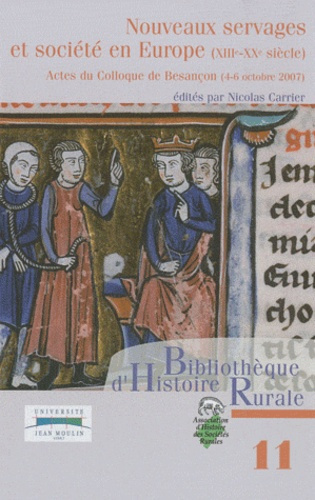 Nouveaux servages
et société en Europe (XIIIe-XXe siècle)
Actes du Colloque de Besançon (4-6 octobre 2007)
édités par Nicolas Carrier
Bibliothèque
d'Histoire Rurale
UNIVERSITE
JEAN MOULIN
Association
d'Histoire
des Sociétés
Rurales
11